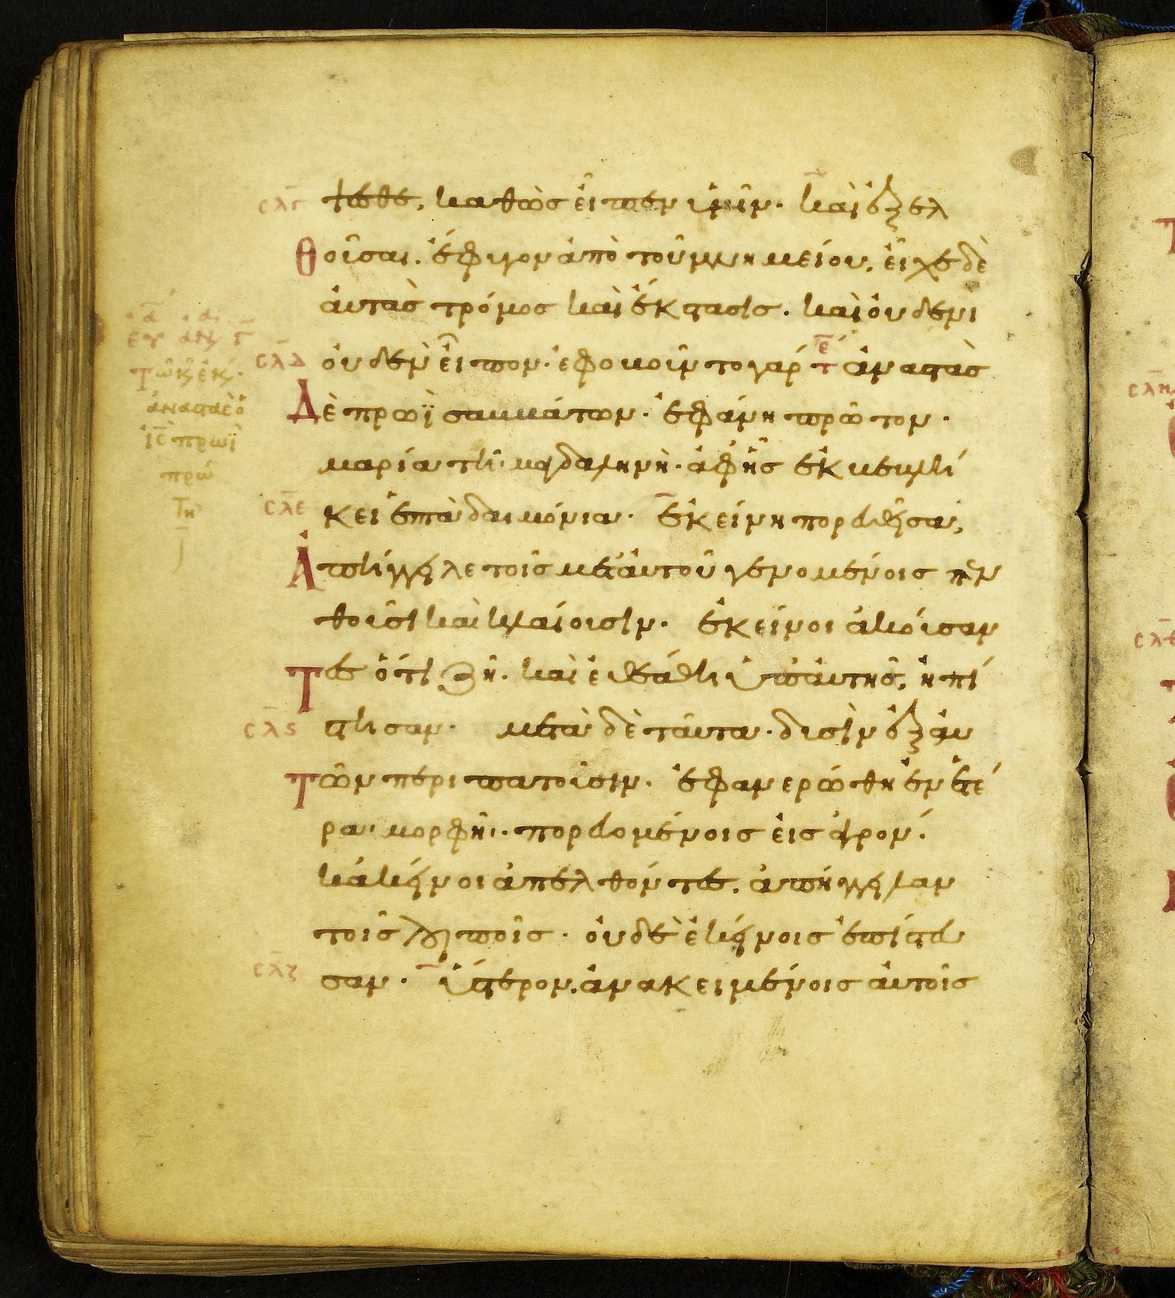 σλγ ψεσθε, καθὼς εἶπεν ὑμῖν· καὶ ἐξελ
θοῦσαι. ἔφυγον ἀπὸ τοῦ μνημείου, εἶχε δὲ
αὐτὰς τρόμος καὶ ἔκστασις. καὶ οὐδενὶ
σλδ οὐδὲν εἶπον· ἐφοβοῦντο γάρ· τε ἀναστὰς
Δὲ πρωῒ σαββάτων. ἐφάνη πρῶτον.
μαρία τῆ μαγδαληνῆ. ἀφ' ἧς ἐκβεβλή
σλε κει ἑπτὰ δαιμόνια. ἐκείνη πορευθεῖσα,
Ἀπήγγειλε τοῖς μετ' αὐτοῦ γενομένοις πεν
θοῦσι καὶ κλαίουσιν. ἐκεῖνοι ἀκούσαν
Τες ὅτι ζῆ. καὶ ἐθεάθη ὑπ' αὐτῆς, ἠπί
σλς στησαν. μετὰ δὲ ταῦτα. δυσὶν ἐξ αὐ
Τῶν περιπατοῦσιν. ἐφανερώθη ἐν ἑτέ
ρα μορφῆ. πορευομένοις εἰς ἀγρόν.
κἀκεῖνοι ἀπελθόντες. ἀπήγγειλαν
τοῖς λοιποῖς. οὐδὲ ἐκείνοις ἐπίστευ
σλζ σαν. ὕστερον. ἀνακειμένοις αὐτοῖς
ἀναστὰς ὁ
ις πρωῒ
πρώ
τη